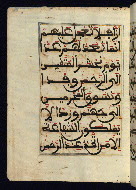 أزا فلا تعجل عليهم
إنما نعد لهم عدا
يوم نحشر المتقين
إلى الرحمن وفدا
ونسوق المجرمين
إلى جهنم وردا لا
يملكون الشفاعة
إلا من اتخذ عند الرحمن